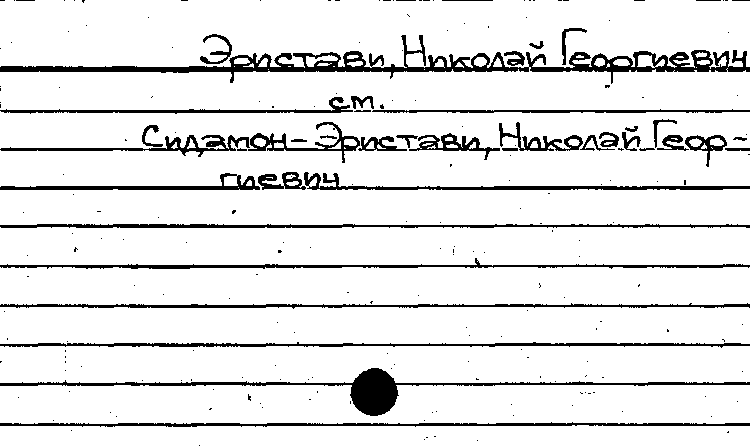 Эристави, Николай Георгиевич
см.
Сидамон-Эристави, Николай Геор-
гиевич